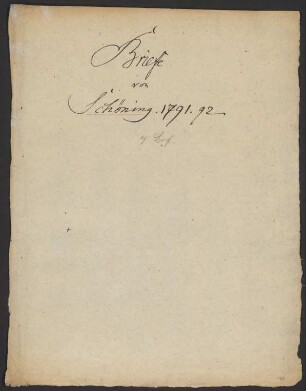 Briefe
von
Schöning. 1791. 92